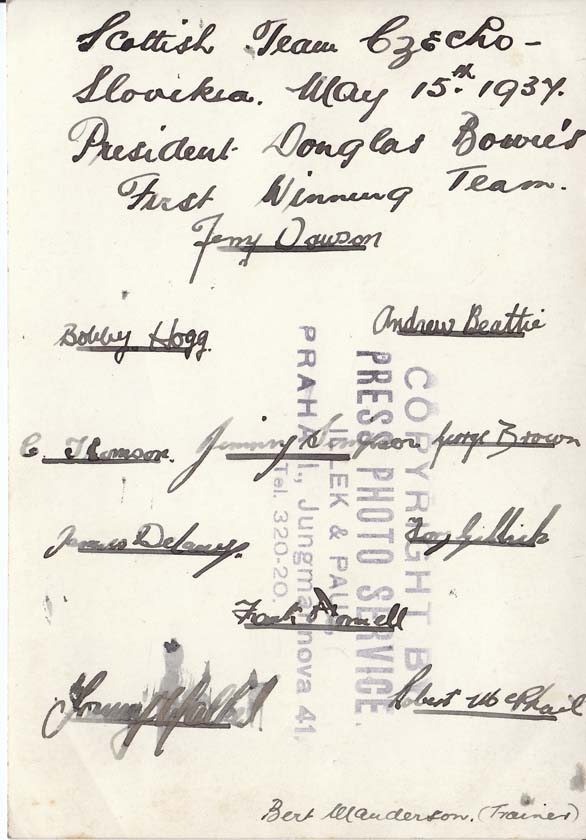 Scottish Team Czecho-
Slovikia. May 15th 1937.
President Douglas Bowie's
First Winning Team.
Jerry Dawson
Bobby Hogg.
Andrew Beattie
C. Thomson.
Jimmy Simpson
George Brown
James Delaney.
Torry Gillick
Frank O'Donnell
Tommy Walker
Robert McPhail
Bert Manderson. (Trainer)
COPYRIGHT B
PRESS PHOTO SERVICE.
LEK & PAUL
PRAHA I, Jungmannova 41.
Tel. 320-20.